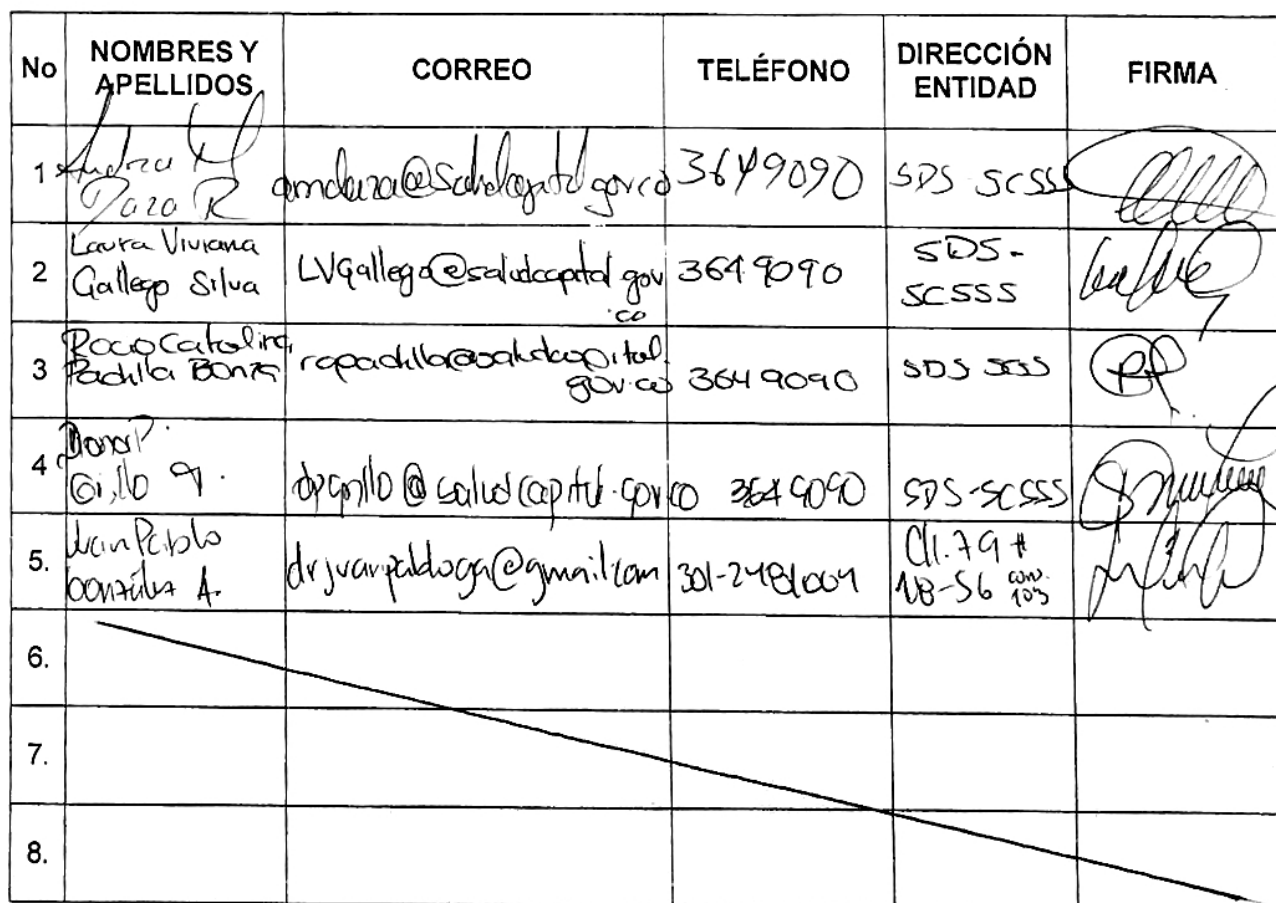 No NOMBRES Y APELLIDOS CORREO TELÉFONO DIRECCIÓN ENTIDAD FIRMA
1 Andrea M Daza R amdaza@saludcapital.gov.co 3649090 SDS SCSS
2 Laura Viviana Gallego Silva LVGallego@saludcapital.gov.co 3649090 SDS-SCSSS
3 Rocio Catalina Padilla Bonza rcpadilla@saludcapital.gov.co 3649090 SDS
4 Diana P. @saludcapital.gov.co 3649090 SDS-SCSSS
5. Juan Pablo González A. drjuanpabloga@gmail.com 301-2481004 Cll. 79 # 18-56 103
6.
7.
8.